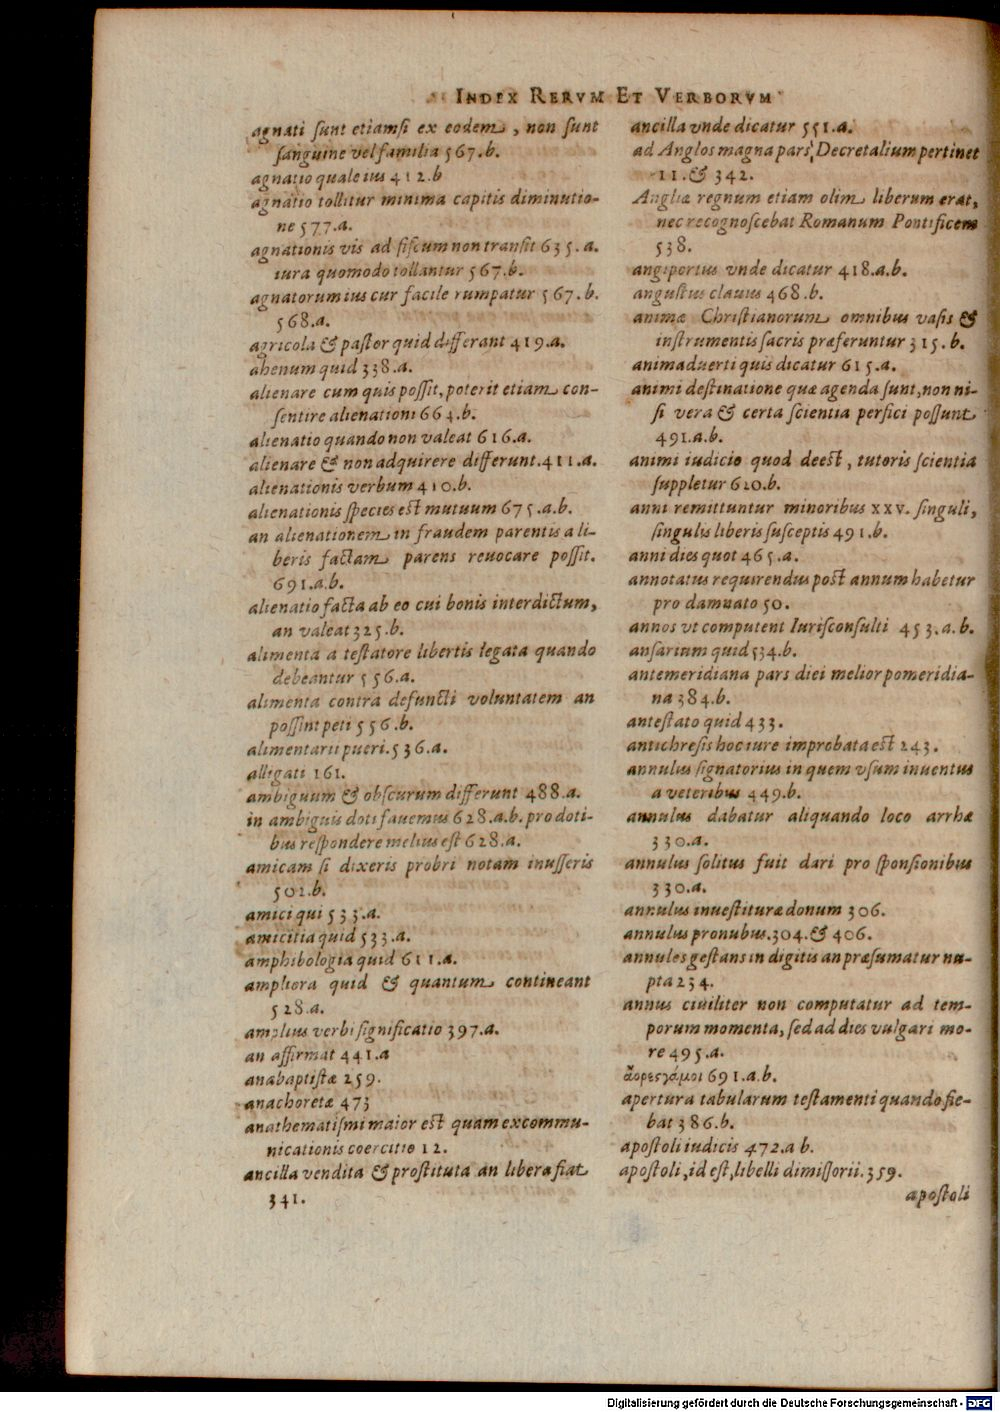 INDEX RERVM ET VERBORVM
agnati ſunt etiamſi ex eodem, non ſunt
ſanguine vel familia 567.b.
agnatio quale ius 412.b
agnatio tollitur minima capitis diminutio-
ne 577.a.
agnationis vis ad fiſcum non tranſit 635.a.
iura quomodo tollantur 567.b.
agnatorum ius cur facile rumpatur 567.b.
568.a.
agricola & paſtor quid differant 419.a.
ahenum quid 338.a.
alienare cum quis poſſit, poterit etiam con-
ſentire alienationi 664.b.
alienatio quando non valeat 616.a.
alienare & non adquirere differunt.411.a.
alienationis verbum 410.b.
alienationis ſpecies est mutuum 675.a.b.
an alienationem in fraudem parentis a li-
beris factam parens reuocare poſſit.
691.a.b.
alienatio facta ab eo cui bonis interdictum,
an valeat 325.b.
alimenta a teſtatore libertis legata quando
debeantur 556.a.
alimenta contra defuncti voluntatem an
poſſint peti 556.b.
alimentarii pueri.536.a.
alligati 161.
ambiguum & obſcurum differunt 488.a.
in ambiguis doti fauemus 628.a.b. pro doti-
bus reſpondere melius eſt 628.a.
amicam ſi dixeris probri notam inuſſeris
502.b.
amici qui 533.a.
amicitia quid 533.a.
amphibologia quid 611.a.
ampliora quid & quantum contineant
528.a.
amplius verbi ſignificatio 397.a.
an affirmat 441.a
anabaptiſtæ 259.
anachoretæ 473
anathematiſmi maior est quam excommu-
nicationis coercitio 12.
ancilla vendita & proſtituta an libera fiat
341.
ancilla vnde dicatur 551.a.
ad Anglos magna pars Decretalium pertinet
11.& 342.
Angliæ regnum etiam olim liberum erat,
nec recognoſcebat Romanum Pontificem
538.
angiportus vnde dicatur 418.a.b.
anguſtus clauus 468.b.
animæ Chriſtianorum omnibus vaſis &
inſtrumentis ſacris præferuntur 315.b.
animaduerti quis dicatur 615.a.
animi deſtinatione quæ agenda ſunt, non ni-
ſi vera & certa ſcientia perfici poſſunt
491.a.b.
animi iudicio quod deest, tutoris ſcientia
ſuppletur 620.b.
anni remittuntur minoribus xxv. ſinguli,
ſingulis liberis ſuſceptis 491.b.
anni dies quot 465.a.
annotatus requirendus post annum habetur
pro damnato 50.
annos vt computent Iuriſconſulti 453.a.b.
anſarium quid 534.b.
antemeridiana pars diei melior pomeridia-
na 384.b.
anteſtato quid 433.
antichreſis hoc iure improbata est 243.
annulus ſignatorius in quem vſum inuentus
a veteribus 449.b.
annulus dabatur aliquando loco arrhæ
330.a.
annulus ſolitus fuit dari pro ſponſionibus
330.a.
annulus inueſtituræ donum 306.
annulus pronubus.304.& 406.
annules geſtans in digitis an præſumatur nu-
pta 234.
annus ciuiliter non computatur ad tem-
porum momenta, ſed ad dies vulgari mo-
re 495.a.
691.a.b.
apertura tabularum teſtamenti quando fie-
bat 386.b.
apoſtoli iudicis 472.a b.
apoſtoli, id eſt, libelli dimiſſorii.359.
apoſtoli
Digitalisierung gefördert durch die Deutsche Forschungsgemeinschaft - DFG